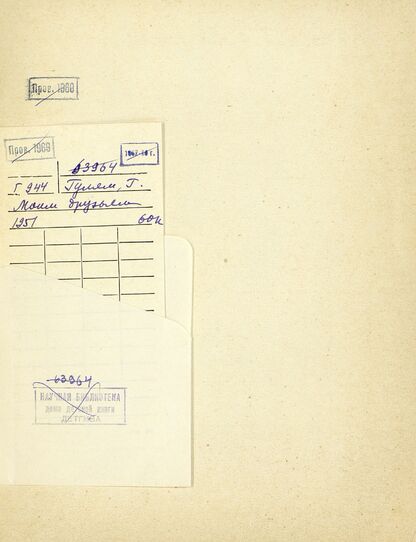 Пров. 1960
Пров. 1966
63964
Г 944 Гулям, Г.
Моим друзьям
1951 60к
63964
НАУЧНАЯ БИБЛИОТЕКА
дома детской книги
ДЕТГИЗА